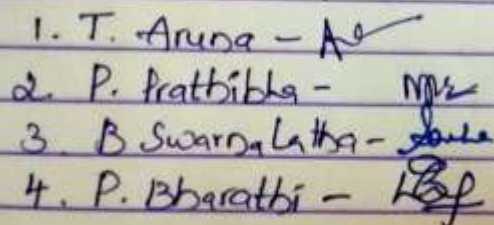 1. T. Aruna -
2. P. Prathibha -
3. B Swarna Latha -
4. P. Bharathi -